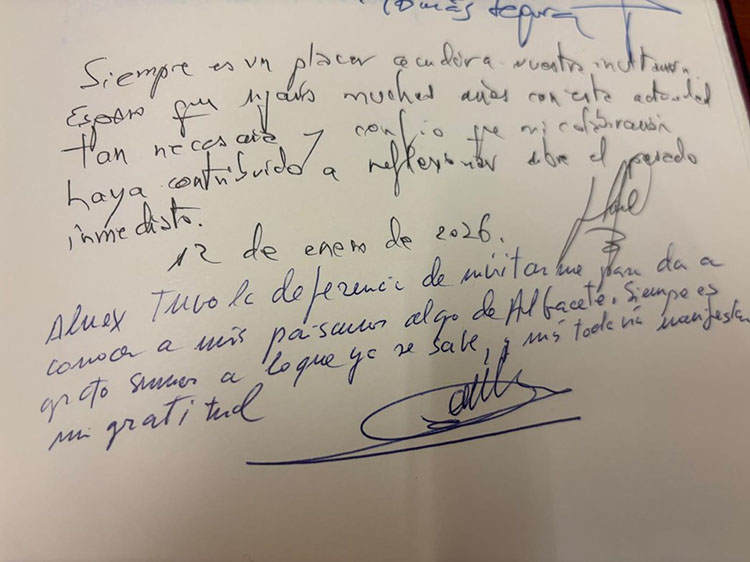 Tomás Segura
Siempre es un placer acudir a nuestra institución.
Espero que sigais muchos años con esta actividad
tan necesaria y confio que mi colaboración
haya contribuido a reflexionar sobre el pasado
inmediato.
12 de enero de 2026.
Aluex Tuvo la deferencia de invitarme para da a
conocer a mis paisanos algo de Albacete. Siempre es
grato sumar a lo que ya se sabe, y más todavía manifestar
mi gratitud